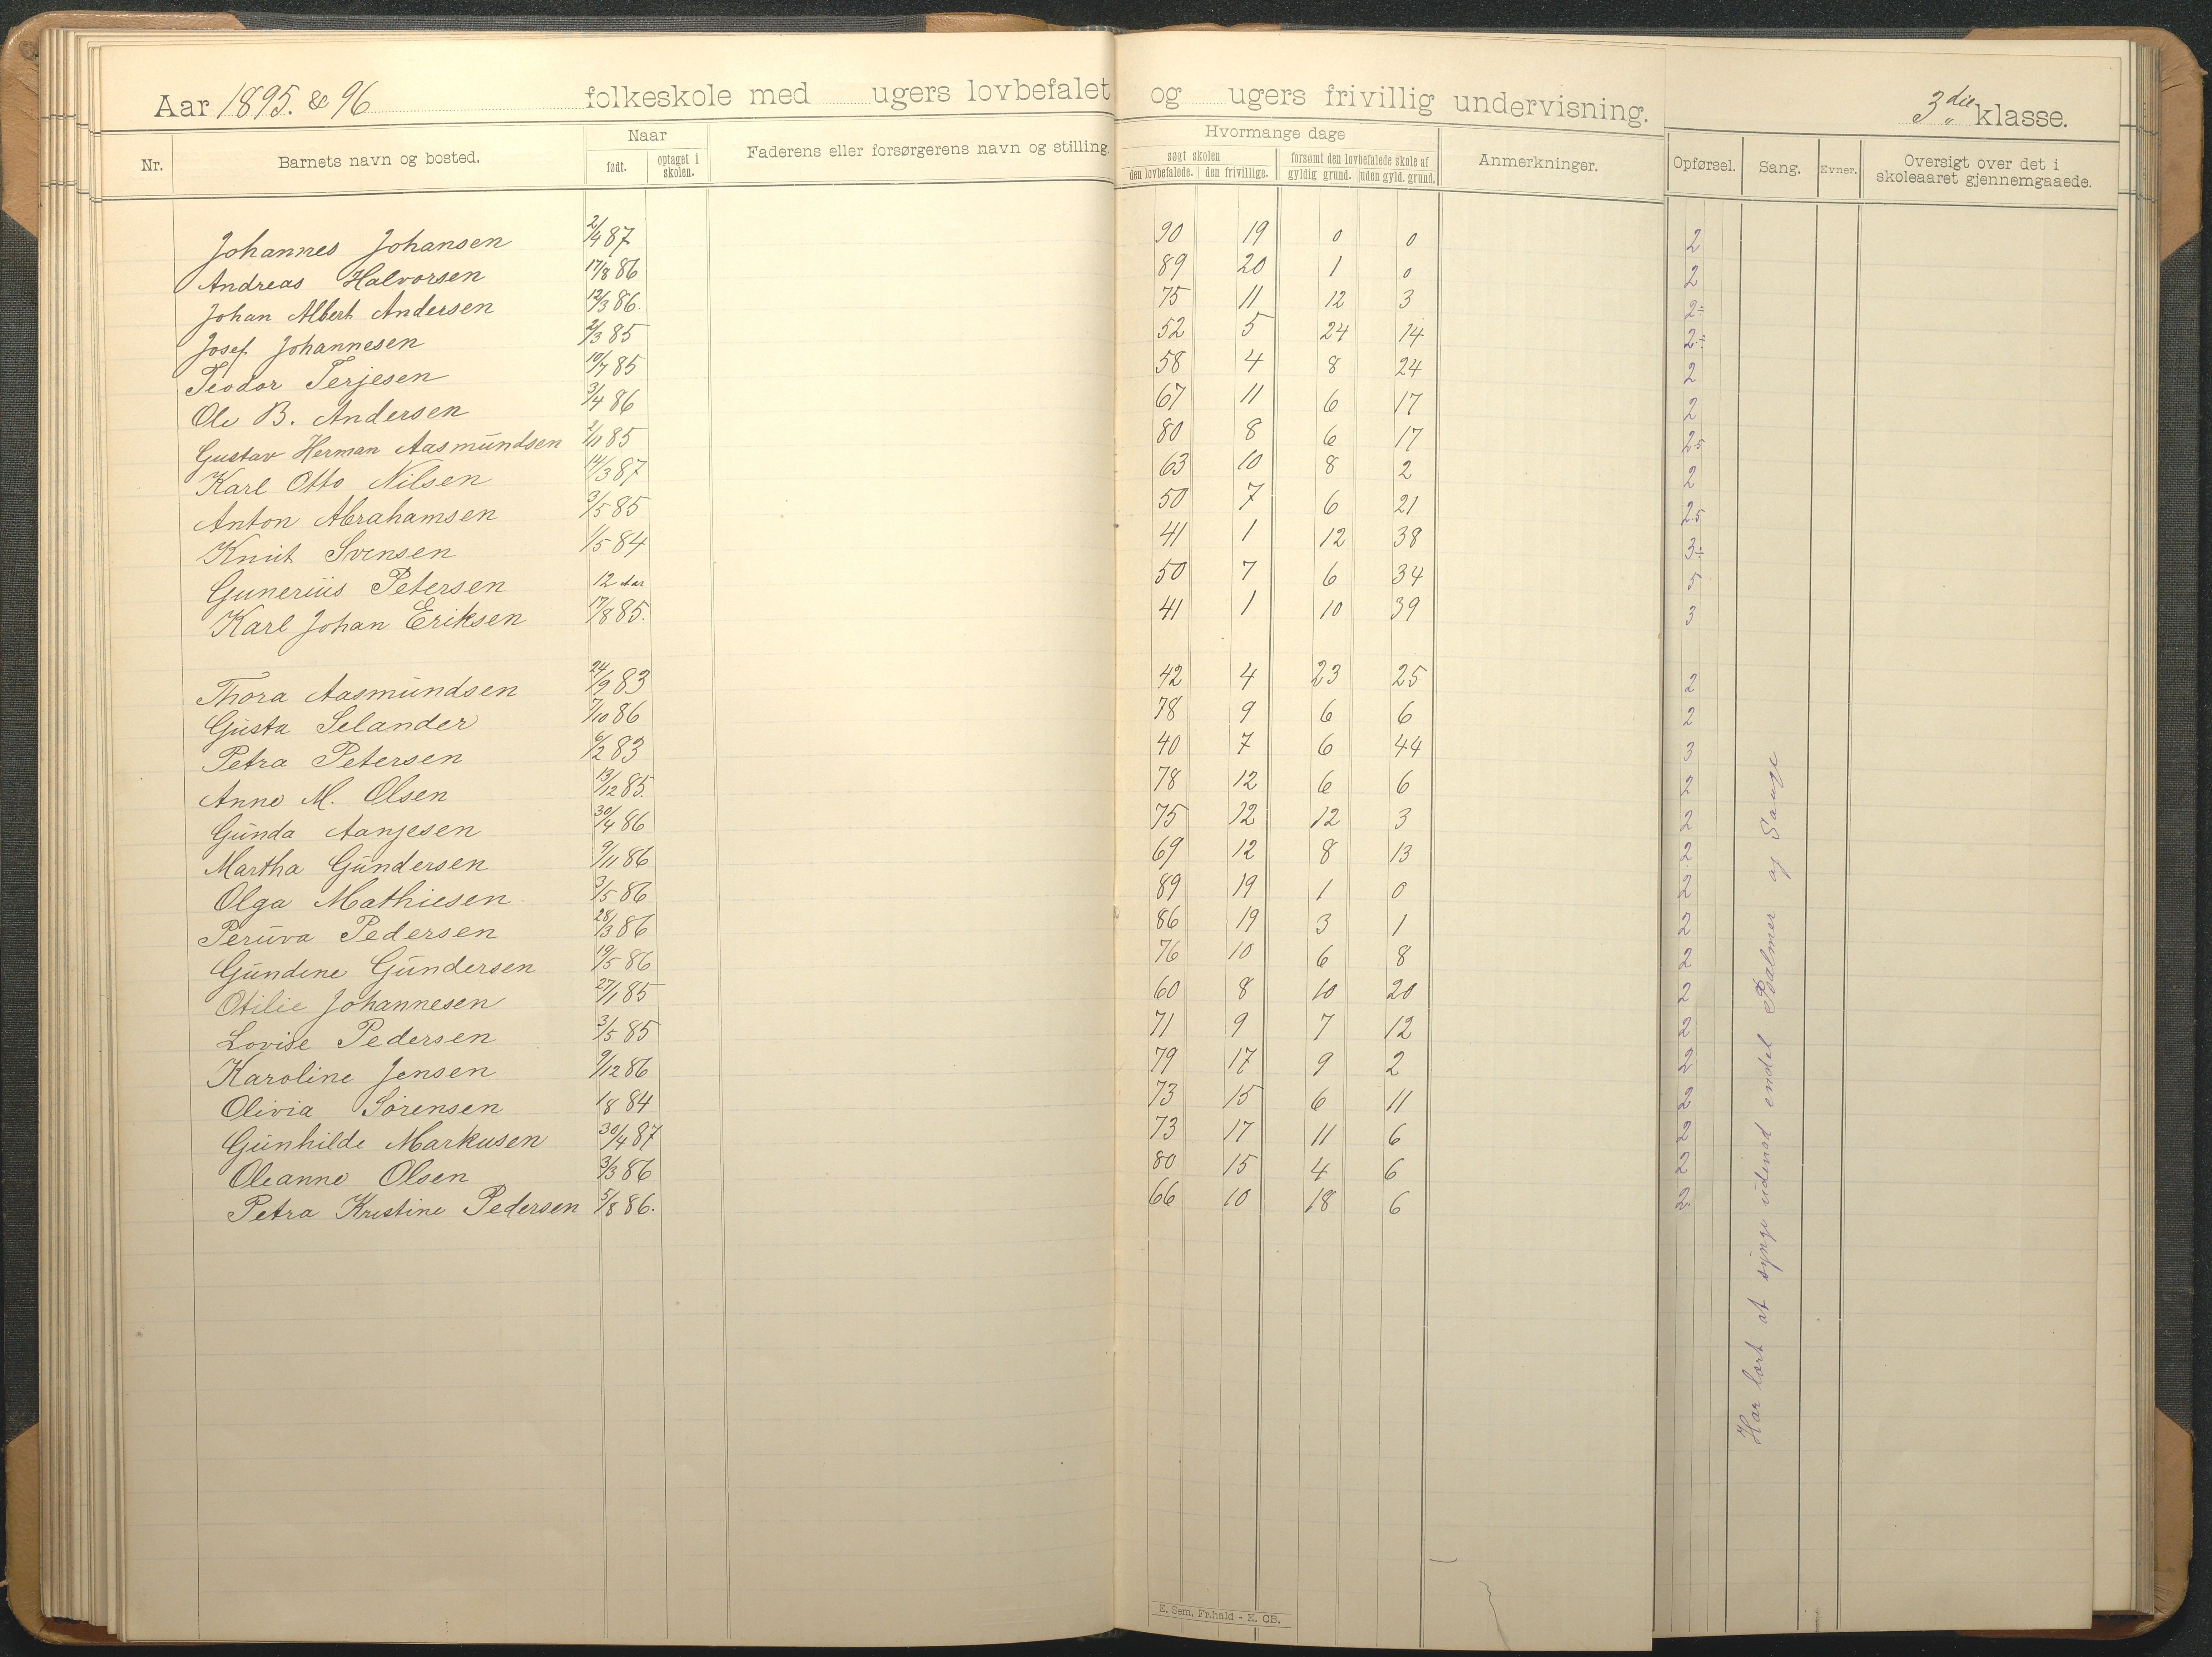 Aar 1895. & 96 folkeskole med ugers lovbefalet og ugers frivillig undervisning. 3die klasse.
Nr. Barnets navn og bosted. Naar født. optaget i skolen. Faderens eller forsørgerens navn og stilling. Hvormange dage søgt skolen den lovbefalede. den frivillige. forsømt den lovbefalede skole af gyldig grund. uden gyld. grund. Anmerkninger. Opførsel. Sang. Evner. Oversigt over det i skoleaaret gjennemgaaede.
Johannes Johansen 2/4 87 90 19 0 0 2
Andreas Halvorsen 17/8 86 89 20 1 0 2
Johan Albert Andersen 12/3 86. 75 11 12 3 2÷
Josef Johannesen 2/3 85 52 5 24 14 2÷
Teodor Terjesen 10/7 85 58 4 8 24 2
Ole B. Andersen 3/4 86 67 11 6 17 2
Gustav Herman Aasmundsen 2/11 85 80 8 6 17 2.5
Karl Otto Nilsen 14/3 87 63 10 8 2 2
Anton Abrahamsen 3/5 85 50 7 6 21 2.5
Knut Svensen 1/5 84 41 1 12 38 3÷
Gunerius Petersen 12 Aar 50 7 6 34 5
Karl Johan Eriksen 17/8 85. 41 1 10 39 3
Thora Aasmundsen 24/9 83 42 4 23 25 2
Gusta Selander 7/10 86 78 9 6 6 2
Petra Petersen 6/2 83 40 7 6 44 3
Anne M. Olsen 13/12 85. 78 12 6 6 2
Gunda Aanjesen 30/4 86 75 12 12 3 2
Martha Gundersen 9/11 86 69 12 8 13 2
Olga Mathiesen 3/5 86 89 19 1 0 2
Peruva Pedersen 28/3 86 86 19 3 1 2
Gundine Gundersen 19/5 86 76 10 6 8 2
Otilie Johannesen 27/1 85 60 8 10 20 2
Lovise Pedersen 3/5 85 71 9 7 12 2
Karoline Jensen 9/12 86 79 17 9 2 2
Olivia Sørensen 1/8 84 73 15 6 11 2
Gunhilde Markusen 30/4 87 73 17 11 6 2
Oleanne Olsen 3/3 86 80 15 4 6 2
Petra Kristine Pedersen 5/8 86. 66 10 18 6 2
Har lært at synge udenad endel Psalmer og Sange
E. Sem, Fr.hald - E. CB.